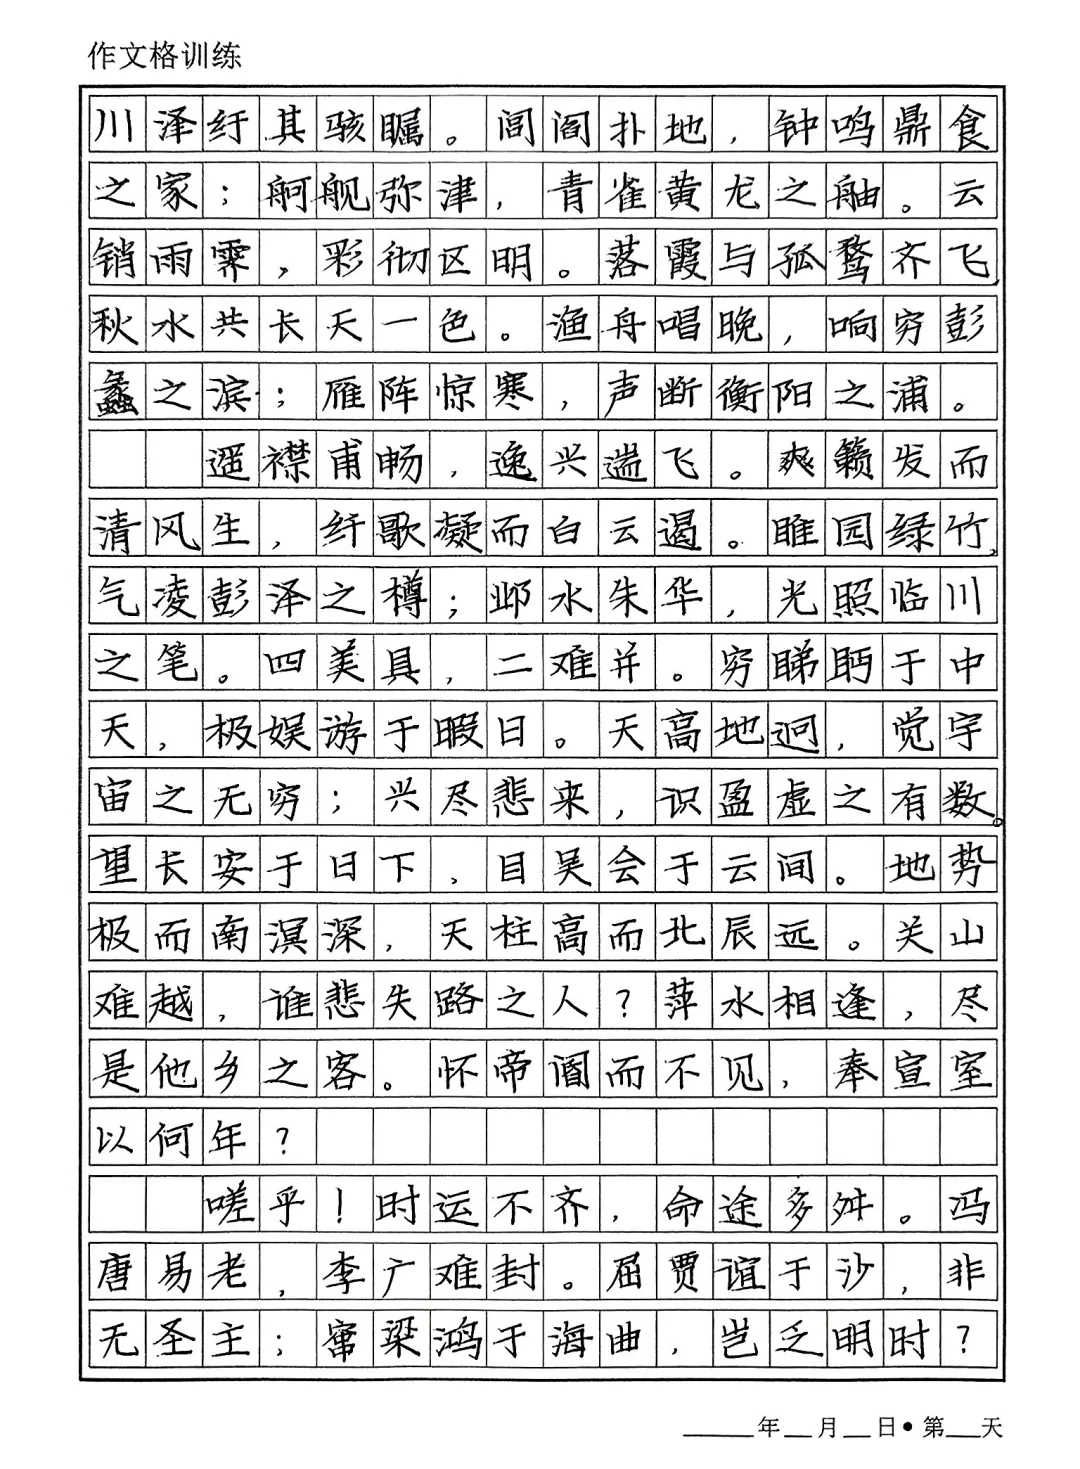 作文格训练
川泽纡其骇瞩。闾阎扑地，钟鸣鼎食
之家；舸舰弥津，青雀黄龙之舳。云
销雨霁，彩彻区明。落霞与孤鹜齐飞，
秋水共长天一色。渔舟唱晚，响穷彭
蠡之滨；雁阵惊寒，声断衡阳之浦。
遥襟甫畅，逸兴遄飞。爽籁发而
清风生，纤歌凝而白云遏。睢园绿竹，
气凌彭泽之樽；邺水朱华，光照临川
之笔。四美具，二难并。穷睇眄于中
天，极娱游于暇日。天高地迥，觉宇
宙之无穷；兴尽悲来，识盈虚之有数。
望长安于日下，目吴会于云间。地势
极而南溟深，天柱高而北辰远。关山
难越，谁悲失路之人？萍水相逢，尽
是他乡之客。怀帝阍而不见，奉宣室
以何年？
嗟乎！时运不齐，命途多舛。冯
唐易老，李广难封。屈贾谊于沙，非
无圣主；窜梁鸿于海曲，岂乏明时？
年 月 日•第 天